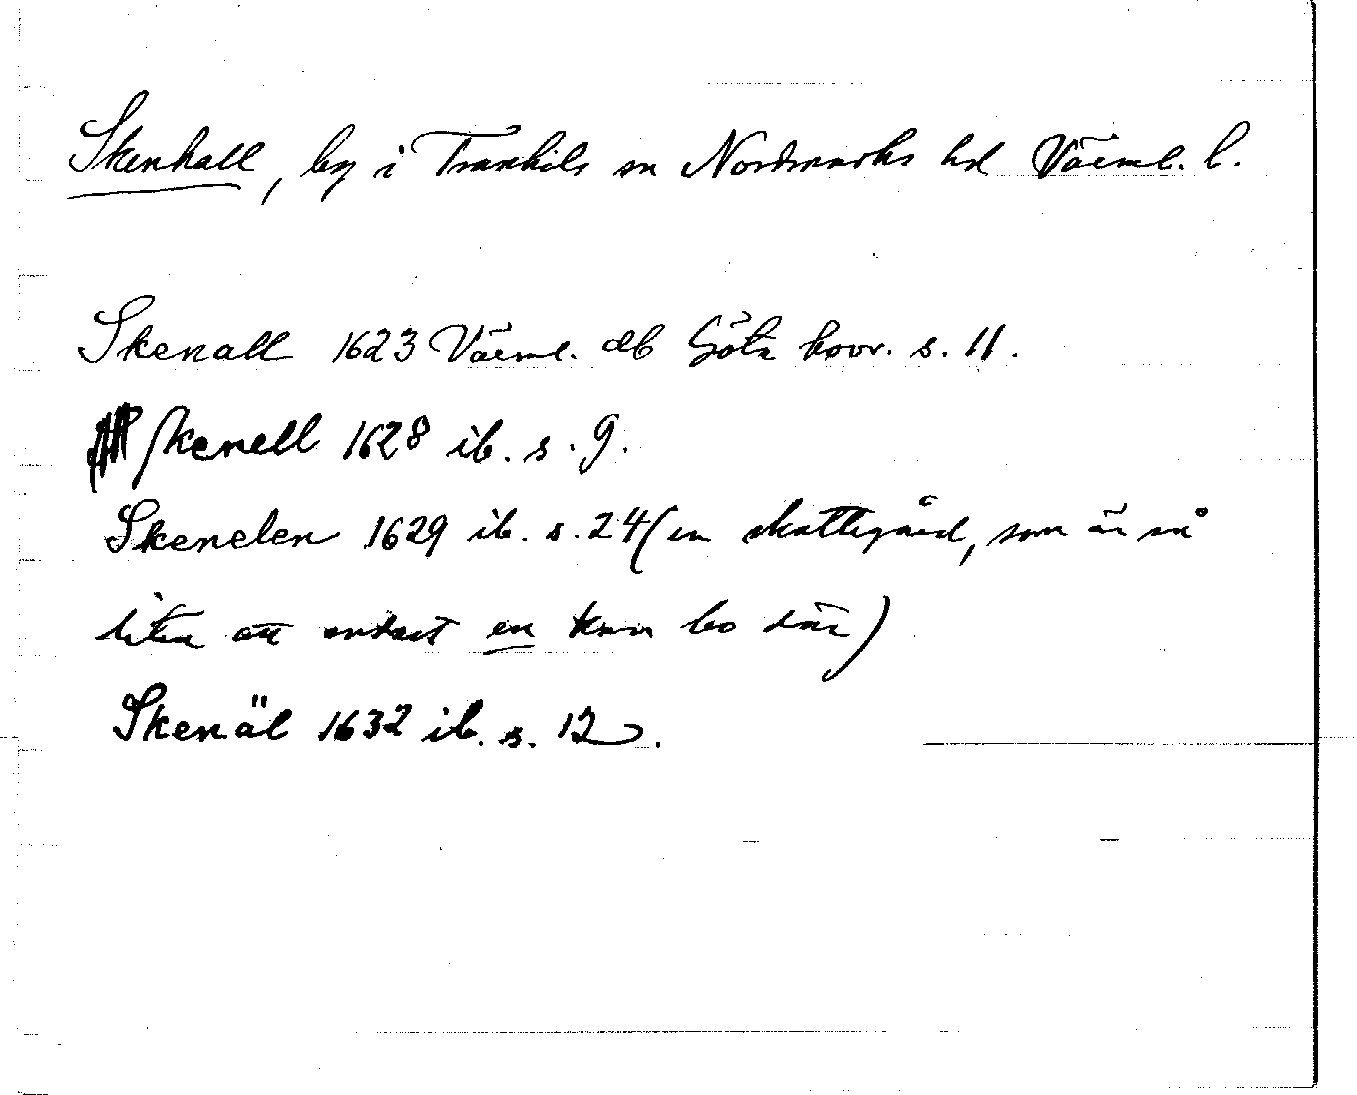 Skenhall, by i Trankils sn Nordmarks hd Värml. l.
Skenall 1623 Värml. db Göta hovr. s. 11.
Skenell 1628 ib. s. 9.
Skenelen 1629 ib. s. 24 (en skattegård, som är så
liten att endast en kan bo där)
Skenäl 1632 ib. s. 12.